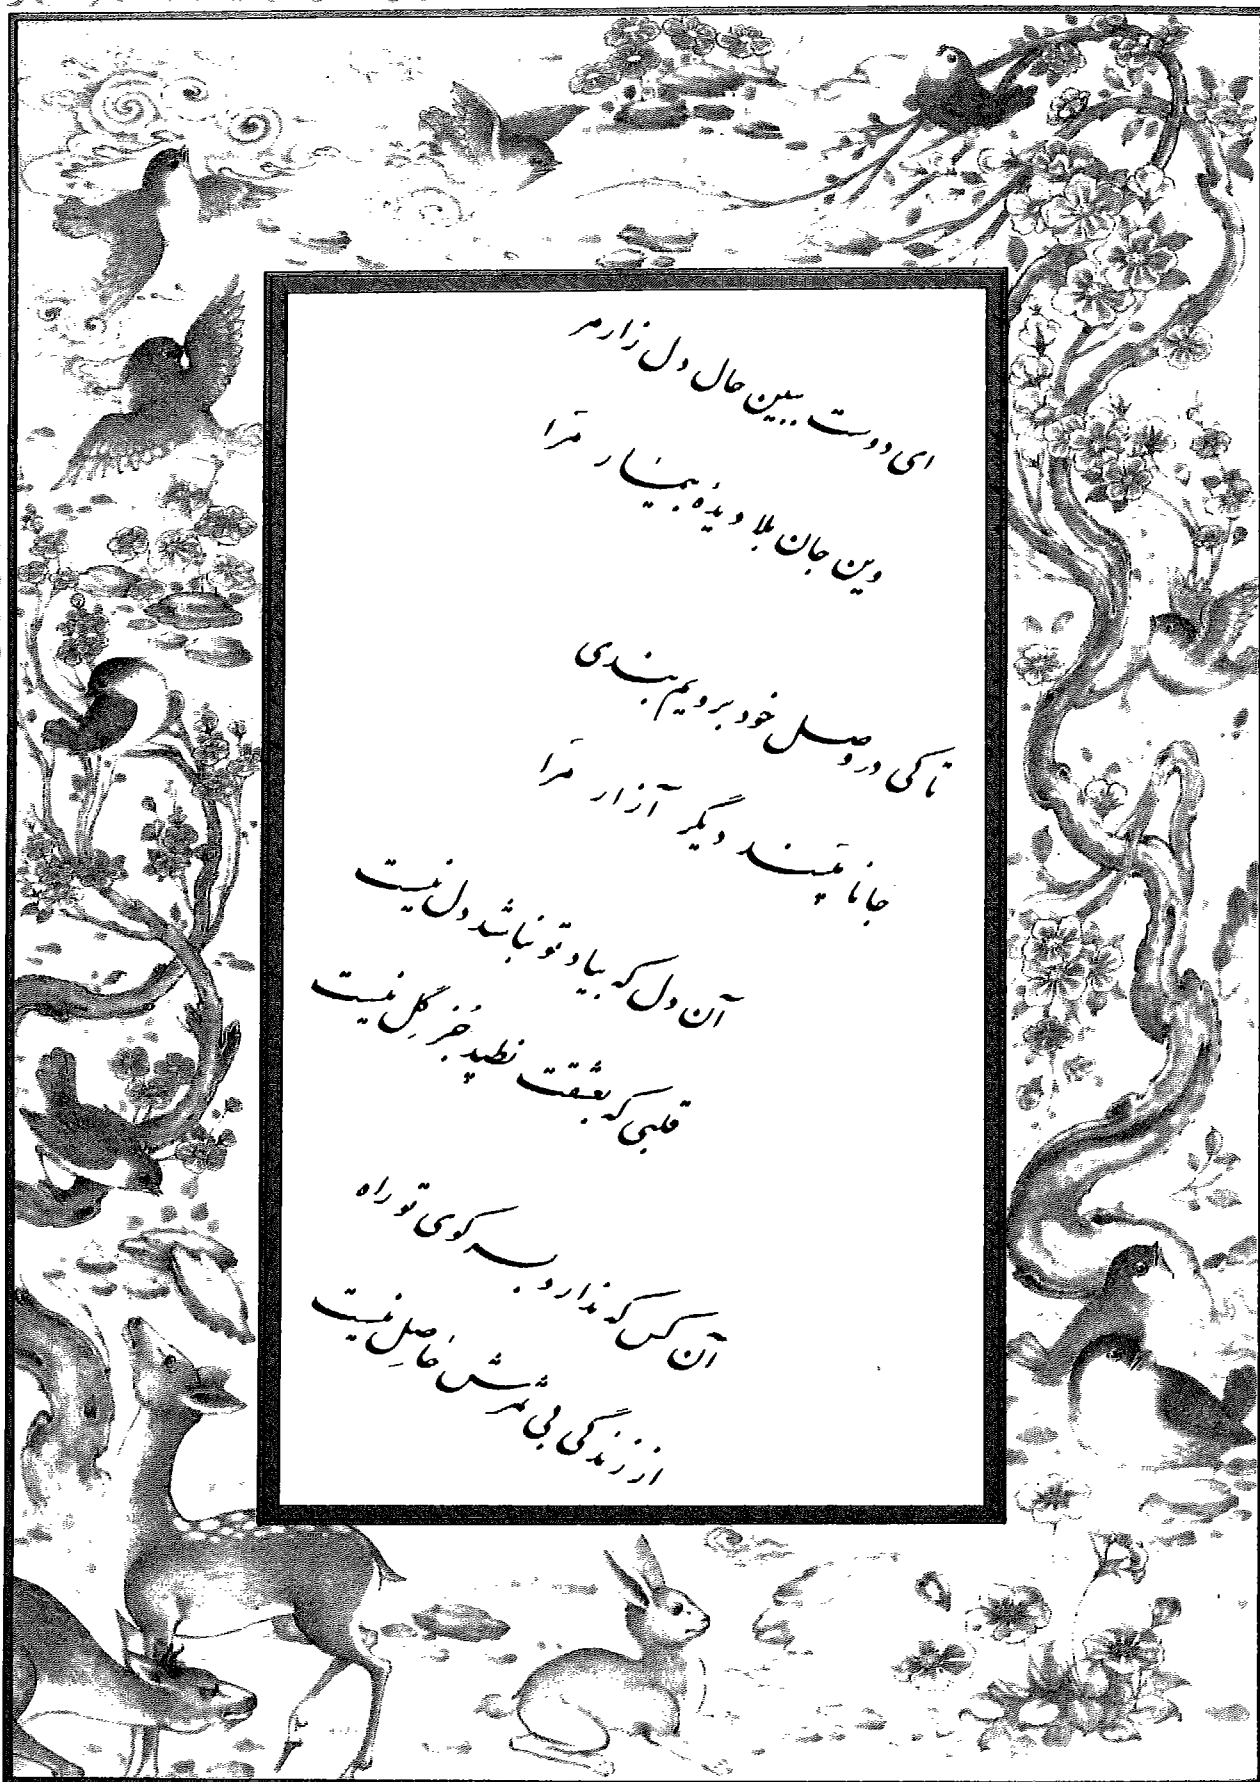 ای دوست ببین حال دل زار مر
وین جان بلا دیده بیمار مرا
تا کی در وصل خود برویم بندی
جانا مپسند دیگر آزار مرا
آن دل که بیاد تو نباشد دل نیست
قلبی که بعشقت نطپد جز گِل نیست
آن کس که ندارد بسر کوی تو راه
از زندگی بی ثمرش حاصِل نیست